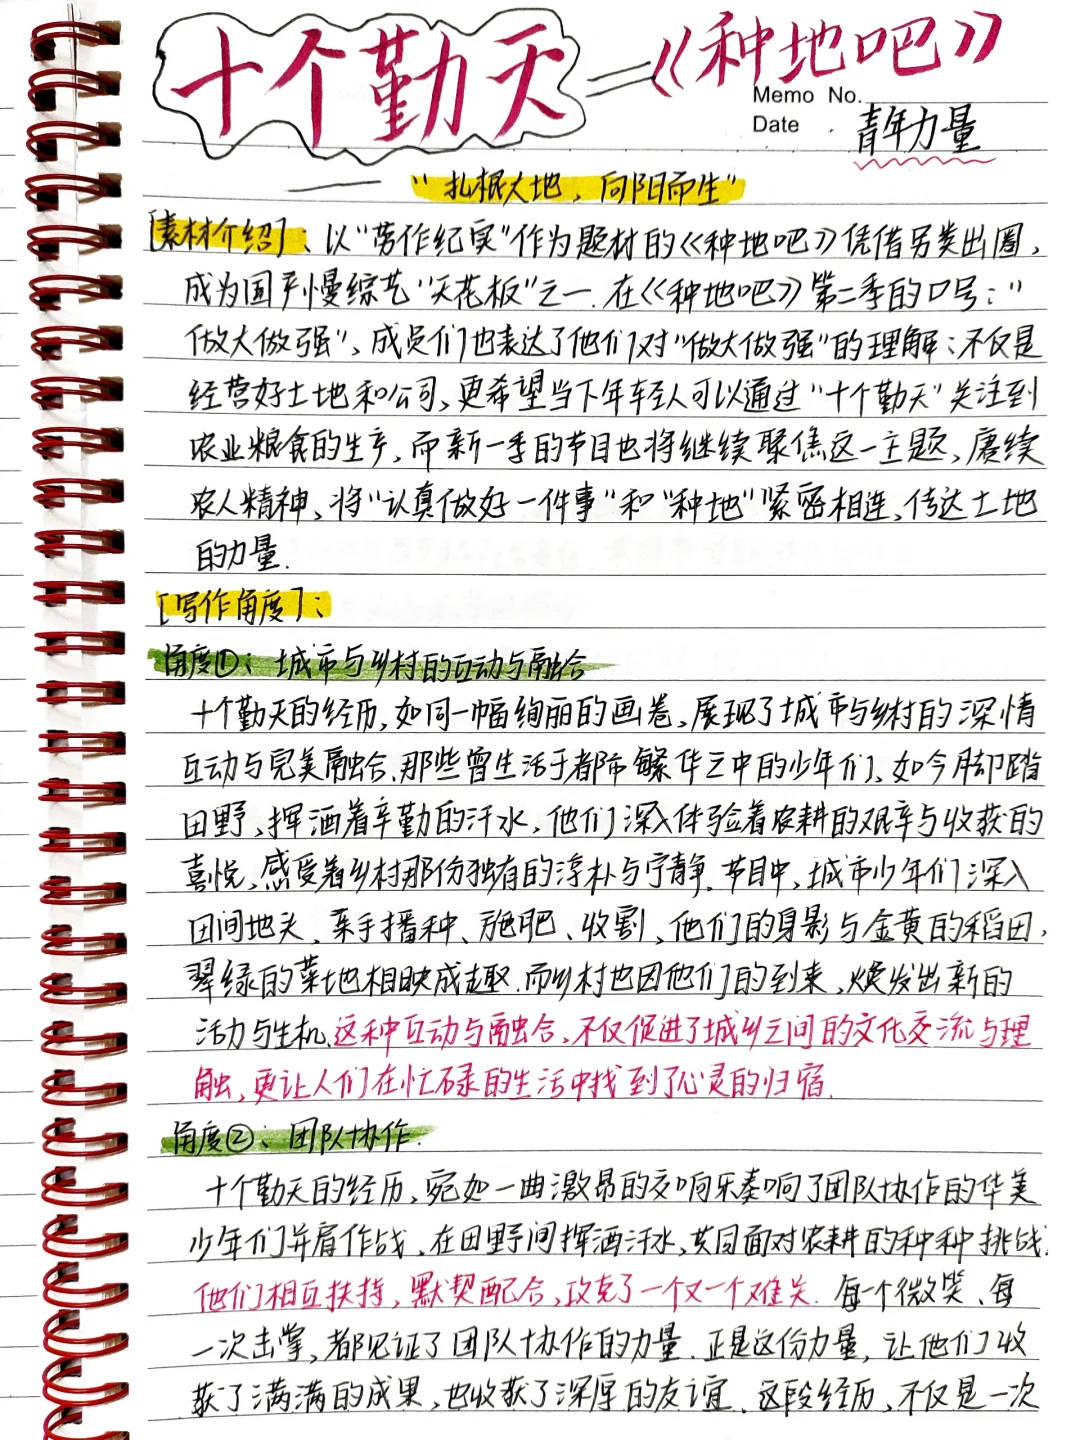 十个勤天=《种地吧》
Memo No.
Date
青年力量
——"扎根大地，向阳而生"
[素材介绍]：以"劳作纪实"作为题材的《种地吧》凭借另类出圈，
成为国产慢综艺"天花板"之一.在《种地吧》第二季的口号："
做大做强"，成员们也表达了他们对"做大做强"的理解：不仅是
经营好土地和公司，更希望当下年轻人可以通过"十个勤天"关注到
农业粮食的生产，而新一季的节目也将继续聚焦这一主题，赓续
农人精神，将"认真做好一件事"和"种地"紧密相连，传达土地
的力量.
[写作角度]：
角度①：城市与乡村的互动与融合
十个勤天的经历，如同一幅绚丽的画卷，展现了城市与乡村的深情
互动与完美融合.那些曾生活于都市繁华之中的少年们，如今脚踏
田野，挥洒着辛勤的汗水，他们深入体验着农耕的艰辛与收获的
喜悦，感受着乡村那份独有的淳朴与宁静.节目中，城市少年们深入
田间地头、亲手播种、施肥、收割，他们的身影与金黄的稻田，
翠绿的菜地相映成趣.而乡村也因他们的到来，焕发出新的
活力与生机.这种互动与融合，不仅促进了城乡之间的文化交流与理
触，更让人们在忙碌的生活中找到了心灵的归宿.
角度②：团队协作.
十个勤天的经历，宛如一曲激昂的交响乐奏响了团队协作的华美
少年们并肩作战，在田野间挥洒汗水，共同面对农耕的种种挑战.
他们相互扶持，默契配合，攻克了一个又一个难关.每一个微笑、每
一次击掌，都见证了团队协作的力量.正是这份力量，让他们收
获了满满的成果，也收获了深厚的友谊.这段经历，不仅是一次